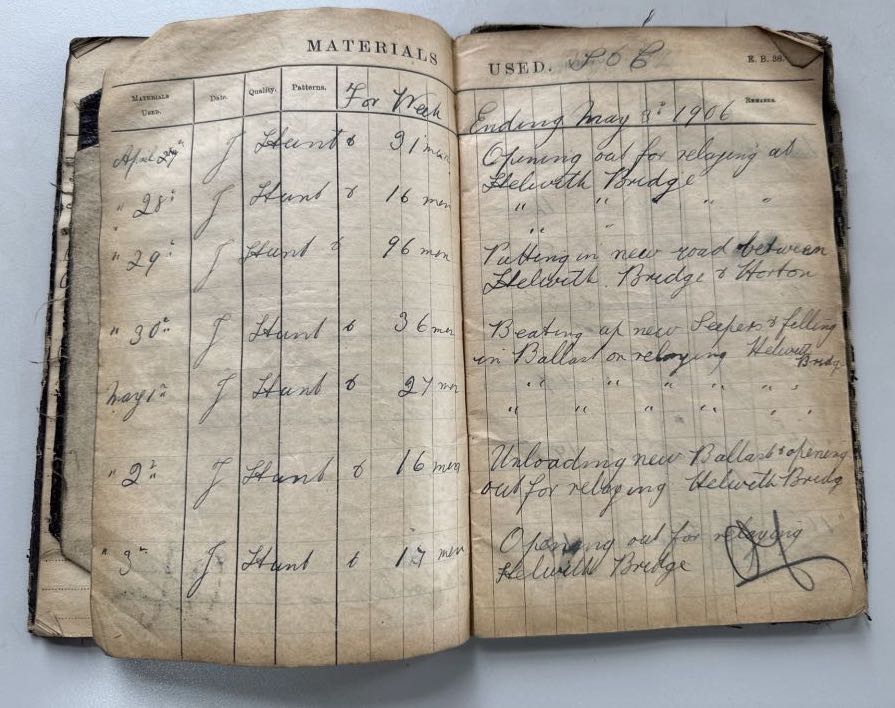 MATERIALS USED. S & C E. B. 38.
MATERIALS USED. Date. Quality. Patterns. For Week Ending May 3rd 1906 REMARKS.
April 27th J Hunt & 31 men Opening out for relaying at
Helwith Bridge
" 28th J Hunt & 16 men " " " " "
" "
" 29th J Hunt & 96 men Putting in new road between
Helwith Bridge & Horton
" 30th J Hunt & 36 men Beating up new Sleepers & filling
in Ballast on relaying Helwith Bridg
May 1st J Hunt & 27 men " " " " " "
" " " " " "
" 2nd J Hunt & 16 men Unloading new Ballast & opening
out for relaying Helwith Bridg
" 3rd J Hunt & 17 men Opening out for relaying
Helwith Bridge